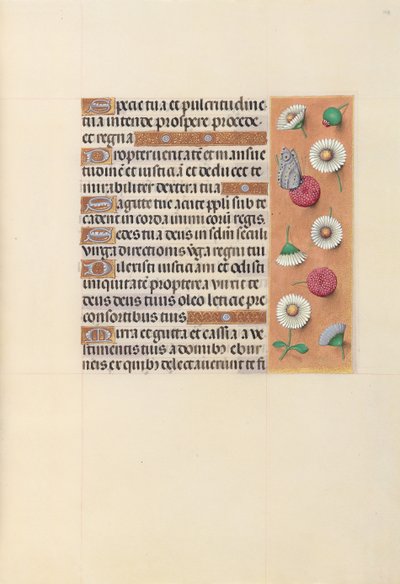 Specie tua et pulcritudine
tua intende prospere procede
et regna
Propter veritatē et mansue
tudinē et iusticiā et deducet te
mirabiliter dextera tua
Sagitte tue acute ppli sub te
cadent in corda inimicorū regis
Sedes tua deus in sclm seculi
virga directionis v̄ga regni tui
Dilexisti iusticiam et odisti
iniquitatē propterea vnxit te
deus deus tuus oleo leticie pre
consortibus tuis
Mirra et gutta et cassia a ve
stimentis tuis a domibꝯ ebur
neis ex quibꝯ delectauerunt te fi